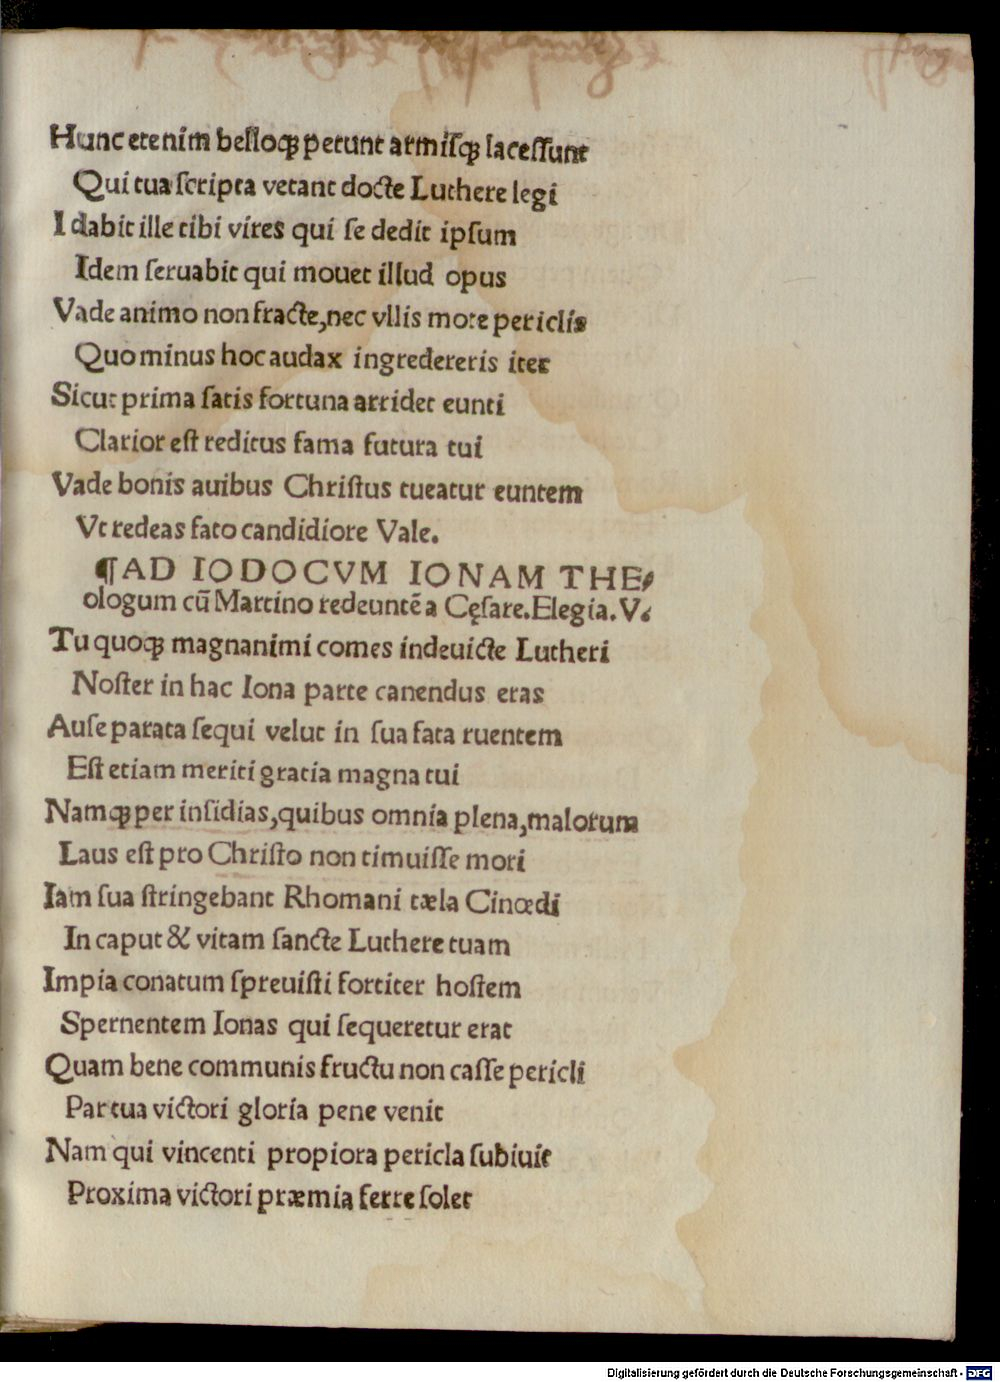 Hunc etenim belloqꝫ petunt armiſqꝫ laceſſunt
Qui tua ſcripta vetant docte Luthere legi
Idabit ille tibi vires qui ſe dedit ipſum
Idem ſeruabit qui mouet illud opus
Vade animo non fracte, nec vllis more periclis
Quo minus hoc audax ingredereris iter
Sicut prima ſatis fortuna arridet eunti
Clarior eſt reditus fama futura tui
Vade bonis auibus Chriſtus tueatur euntem
Vt redeas fato candidiore Vale.
¶AD IODOCVM IONAM THE⸗
ologum cū Martino redeuntē a Cęſare. Elegia. V.
Tu quoqꝫ magnanimi comes indeuicte Lutheri
Noſter in hac Iona parte canendus eras
Auſe parata ſequi velut in ſua fata ruentem
Eſt etiam meriti gratia magna tui
Namqꝫ per inſidias, quibus omnia plena, malorum
Laus eſt pro Chriſto non timuiſſe mori
Iam ſua ſtringebant Rhomani tæla Cinœdi
In caput & vitam ſancte Luthere tuam
Impia conatum ſpreuiſti fortiter hoſtem
Spernentem Ionas qui ſequeretur erat
Quam bene communis fructu non caſſe pericli
Par tua victori gloria pene venit
Nam qui vincenti propiora pericla ſubiuit
Proxima victori præmia ferre ſolet
Digitalisierung gefördert durch die Deutsche Forschungsgemeinschaft - DFG